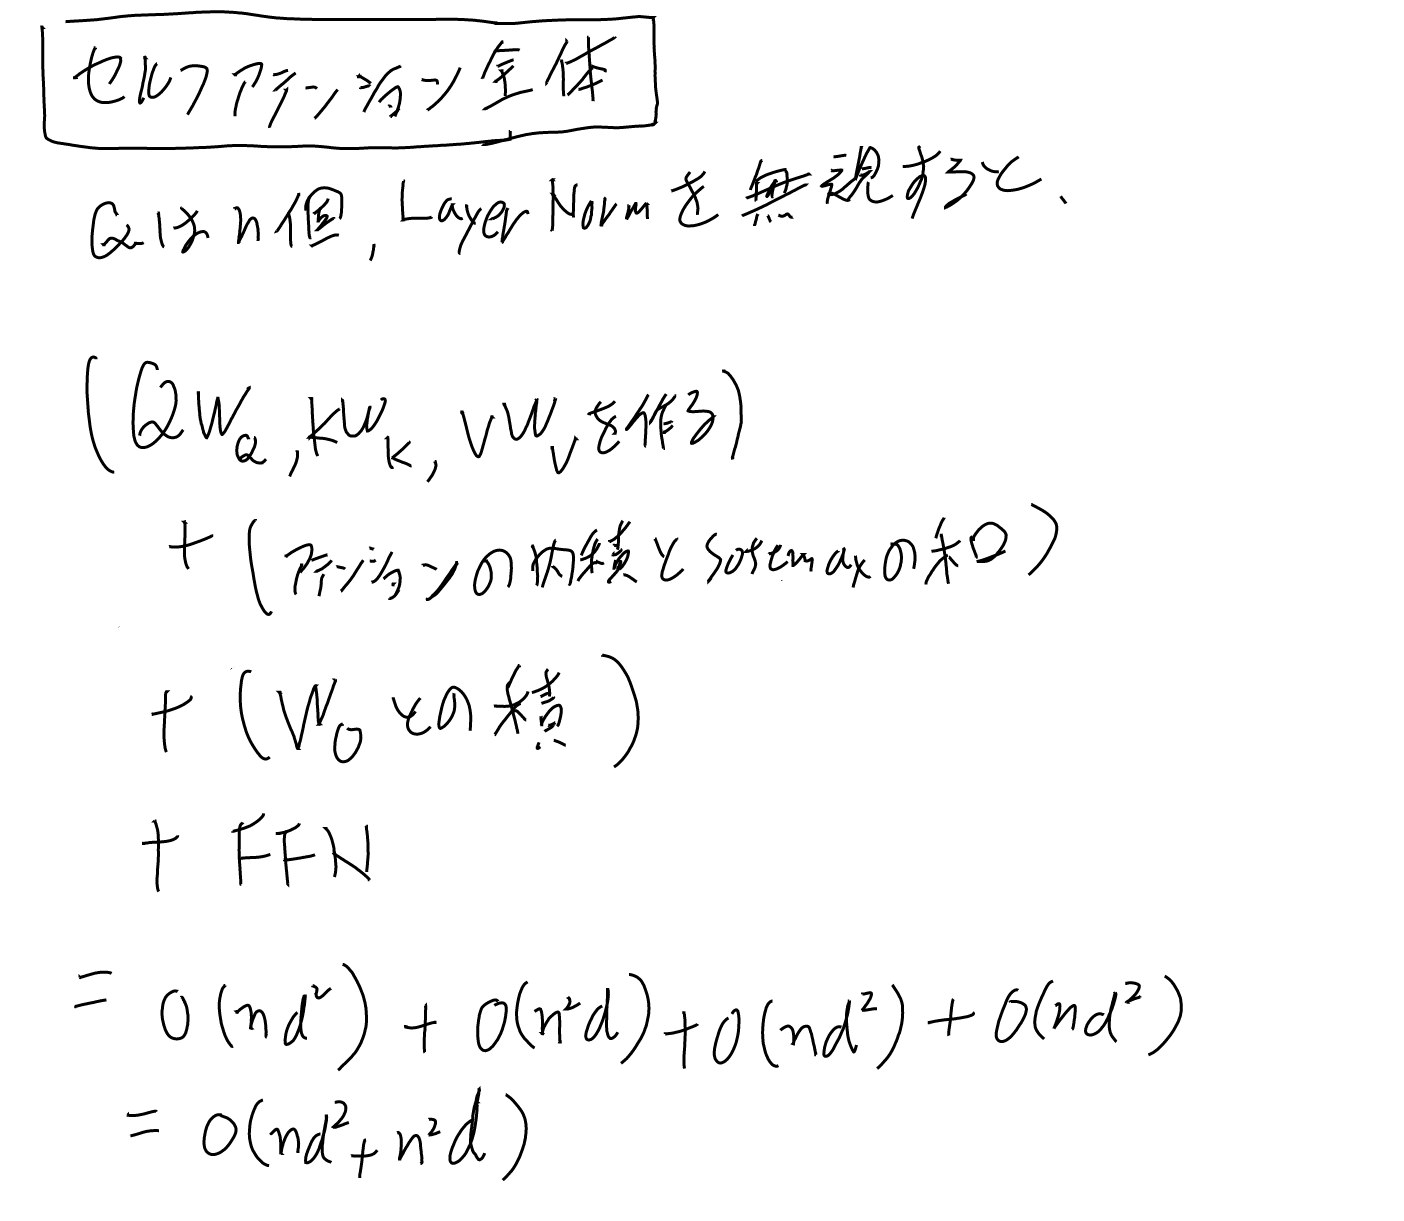 セルフアテンション全体
Qはn個, Layer Normを無視すると、
(QW_Q, KW_K, VW_Vを作る)
+ (アテンションの内積とsoftmaxの和)
+ (W_Oとの積)
+ FFN
= O(nd²) + O(n²d) + O(nd²) + O(nd²)
= O(nd² + n²d)